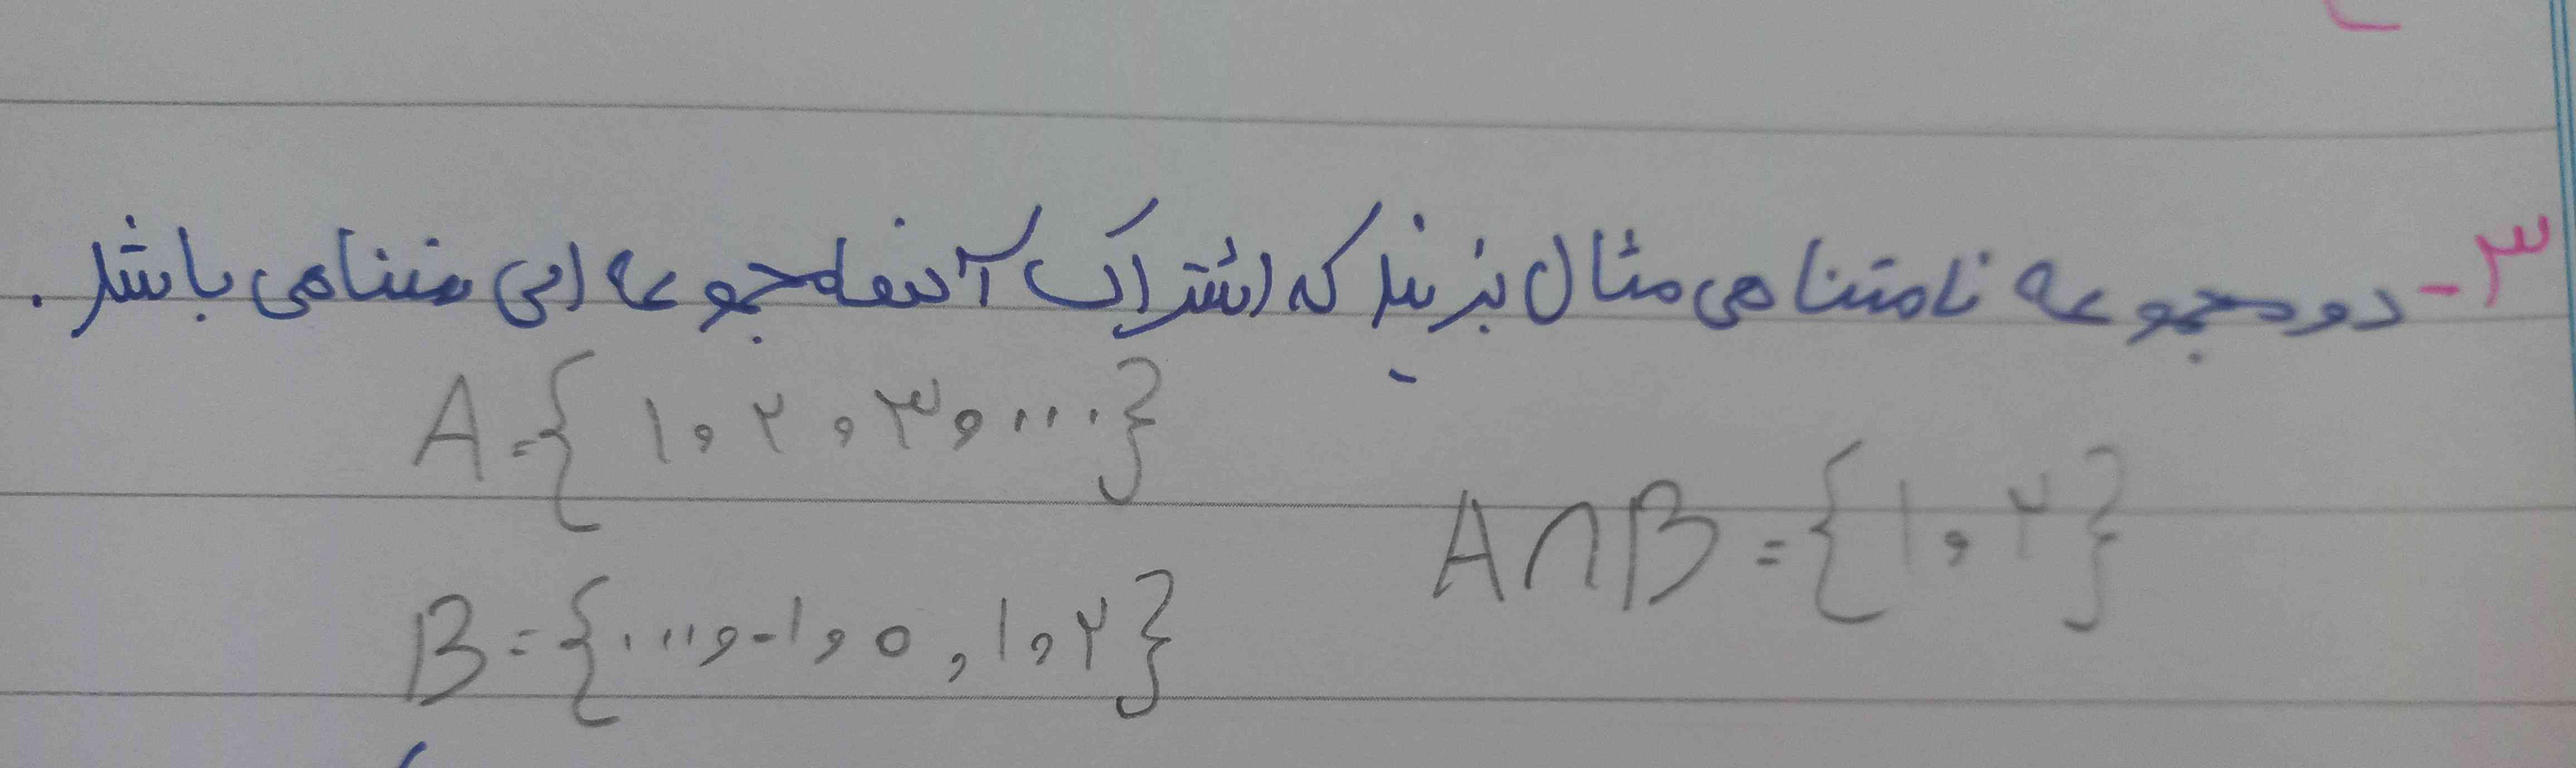 ۳- دو مجموعه نامتناهی مثال بزنید که اشتراک آنها مجموعه ای متناهی باشد.
A={۱,۲,۳,....}
A∩B={۱,۲}
B={....,-۱,۰,۱,۲}